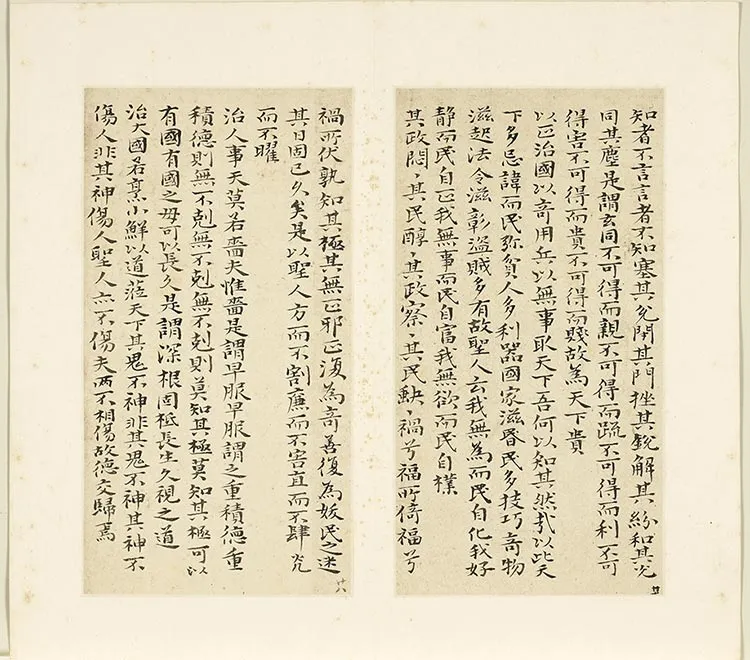 知者不言言者不知塞其兊閉其門挫其銳解其紛和其光
同其塵是謂玄同不可得而親不可得而疏不可得而利不可
得害不可得而貴不可得而賤故為天下貴
以正治國以奇用兵以無事取天下吾何以知其然哉以此天
下多忌諱而民弥貧人多利器國家滋昬民多技巧奇物
滋起法令滋彰盜賊多有故聖人云我無為而民自化我好
靜而民自正我無事而民自富我無欲而民自樸
其政悶〻其民醇〻其政察〻其民缺〻禍兮福所倚福兮
禍所伏孰知其極其無正邪正復為奇善復為妖民之迷
其日固已久矣是以聖人方而不割廉而不害直而不肆光
而不曜
治人事天莫若嗇夫惟嗇是謂早服早服謂之重積德重
積德則無不剋無不剋則莫知其極莫知其極可以
有國有國之母可以長久是謂深根固柢長生久視之道
治大國若烹小鮮以道蒞天下其鬼不神非其鬼不神其神不
傷人非其神傷人聖人亦不傷夫兩不相傷故德交歸焉